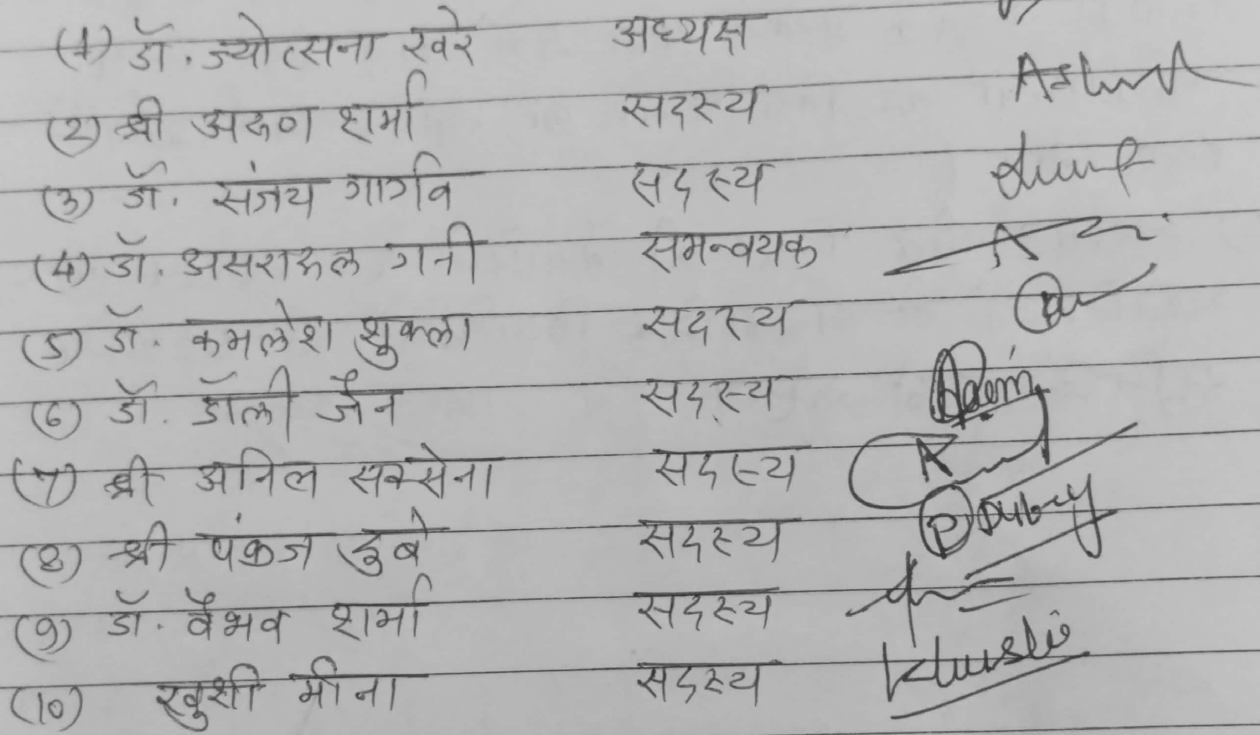 (1) डॉ. ज्योत्सना खरे अध्यक्ष
(2) श्री अरुण शर्मा सदस्य
(3) डॉ. संजय गार्गव सदस्य
(4) डॉ. असरारुल गनी समन्वयक
(5) डॉ. कमलेश शुक्ला सदस्य
(6) डॉ. डॉली जैन सदस्य
(7) श्री अनिल सक्सेना सदस्य
(8) श्री पंकज दुबे सदस्य P Dubey
(9) डॉ. वैभव शर्मा सदस्य
(10) खुशी मीना सदस्य Khushi